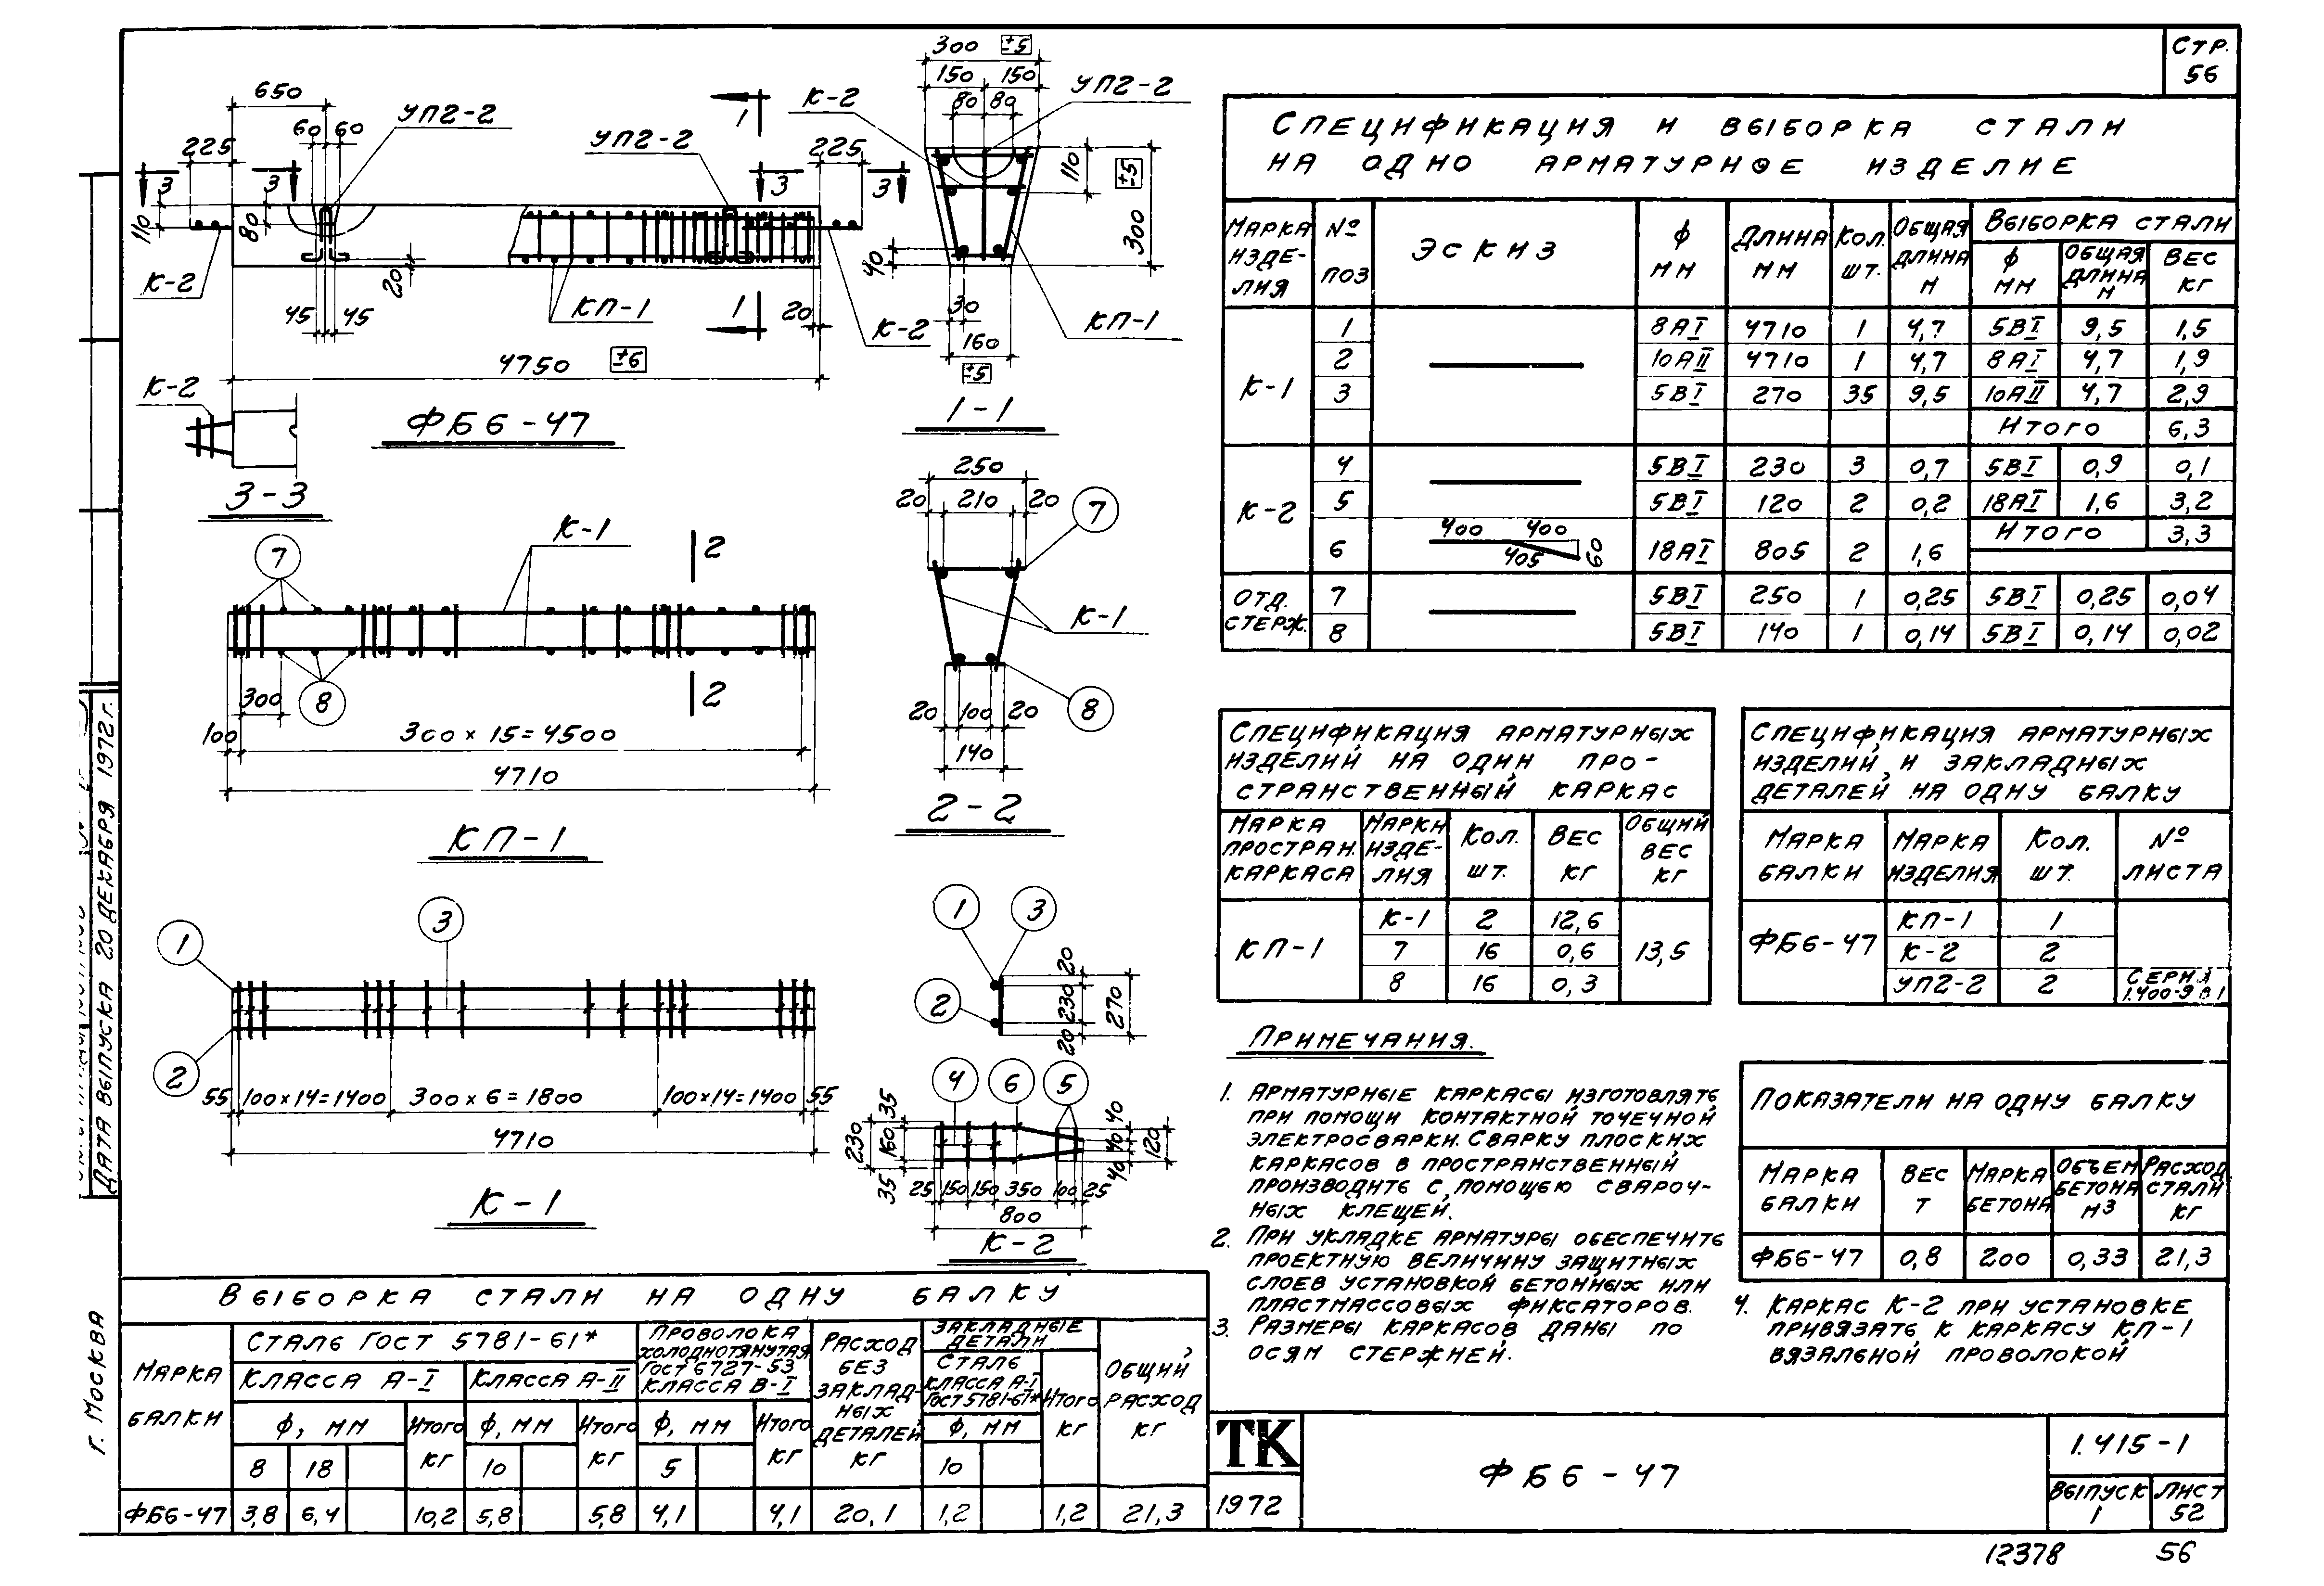 СТР.
56
650
УП2-2
60 60
225
3 3
110
80
К-2
45 45
20
УП2-2
1
К-2
225
3 3
КП-1
1
20
К-2
4750 ±6
ФБ6-47
К-2
3-3
300 ±5
150 150
УП2-2
80 80
110
±5
300
40
30
КП-1
160
±5
1-1
К-1
2
7
8
300
2
100
300 × 15 = 4500
4710
КП-1
250
20 210 20
7
К-1
20 100 20
8
140
2-2
1
3
2
55 100×14=1400 300 × 6 = 1800 100×14=1400 55
4710
К-1
1 3
2
20
230
20
270
4 6 5
35
160
35
230
40
40
40
120
25 150 150 350 100 25
800
К-2
СПЕЦИФИКАЦИЯ И ВЫБОРКА СТАЛИ
НА ОДНО АРМАТУРНОЕ ИЗДЕЛИЕ
МАРКА ИЗДЕ-ЛИЯ № ПОЗ ЭСКИЗ Ф ММ ДЛИНА ММ КОЛ. ШТ. ОБЩАЯ ДЛИНА М ВЫБОРКА СТАЛИ
Ф ММ ОБЩАЯ ДЛИНА М ВЕС КГ
К-1
1 8АI 4710 1 4,7 5ВI 9,5 1,5
2 10АII 4710 1 4,7 8АI 4,7 1,9
3 5ВI 270 35 9,5 10АII 4,7 2,9
ИТОГО 6,3
К-2
4 5ВI 230 3 0,7 5ВI 0,9 0,1
5 5ВI 120 2 0,2 18АI 1,6 3,2
ИТОГО 3,3
6 400 400 405 60 18АI 805 2 1,6
ОТД. СТЕРЖ.
7 5ВI 250 1 0,25 5ВI 0,25 0,04
8 5ВI 140 1 0,14 5ВI 0,14 0,02
СПЕЦИФИКАЦИЯ АРМАТУРНЫХ
ИЗДЕЛИЙ НА ОДИН ПРО-
СТРАНСТВЕННЫЙ КАРКАС
МАРКА ПРОСТРАН. КАРКАСА МАРКИ ИЗДЕ-ЛИЯ КОЛ. ШТ. ВЕС КГ ОБЩИЙ ВЕС КГ
КП-1
К-1 2 12,6
7 16 0,6
8 16 0,3
13,5
СПЕЦИФИКАЦИЯ АРМАТУРНЫХ
ИЗДЕЛИЙ И ЗАКЛАДНЫХ
ДЕТАЛЕЙ НА ОДНУ БАЛКУ
МАРКА БАЛКИ МАРКА ИЗДЕЛИЯ КОЛ. ШТ. № ЛИСТА
ФБ6-47
КП-1 1
К-2 2
УП2-2 2 СЕРИЯ 1.400-9 В 1
ПРИМЕЧАНИЯ.
1. АРМАТУРНЫЕ КАРКАСЫ ИЗГОТОВЛЯТЬ
ПРИ ПОМОЩИ КОНТАКТНОЙ ТОЧЕЧНОЙ
ЭЛЕКТРОСВАРКИ. СВАРКУ ПЛОСКИХ
КАРКАСОВ В ПРОСТРАНСТВЕННЫЙ
ПРОИЗВОДИТЬ С ПОМОЩЬЮ СВАРОЧ-
НЫХ КЛЕЩЕЙ.
2. ПРИ УКЛАДКЕ АРМАТУРЫ ОБЕСПЕЧИТЬ
ПРОЕКТНУЮ ВЕЛИЧИНУ ЗАЩИТНЫХ
СЛОЕВ УСТАНОВКОЙ БЕТОННЫХ ИЛИ
ПЛАСТМАССОВЫХ ФИКСАТОРОВ.
3. РАЗМЕРЫ КАРКАСОВ ДАНЫ ПО
ОСЯМ СТЕРЖНЕЙ.
ПОКАЗАТЕЛИ НА ОДНУ БАЛКУ
МАРКА БАЛКИ ВЕС Т МАРКА БЕТОНА ОБЪЕМ БЕТОНА М3 РАСХОД СТАЛИ КГ
ФБ6-47 0,8 200 0,33 21,3
4. КАРКАС К-2 ПРИ УСТАНОВКЕ
ПРИВЯЗАТЬ К КАРКАСУ КП-1
ВЯЗАЛЬНОЙ ПРОВОЛОКОЙ
ВЫБОРКА СТАЛИ НА ОДНУ БАЛКУ
МАРКА БАЛКИ
СТАЛЬ ГОСТ 5781-61*
КЛАССА А-I КЛАССА А-II
ПРОВОЛОКА ХОЛОДНОТЯНУТАЯ ГОСТ 6727-53 КЛАССА В-I
РАСХОД БЕЗ ЗАКЛАД-НЫХ ДЕТАЛЕЙ КГ
ЗАКЛАДНЫЕ ДЕТАЛИ
СТАЛЬ КЛАССА А-I ГОСТ 5781-61*
ИТОГО КГ
ОБЩИЙ РАСХОД КГ
Ф, ММ ИТОГО КГ Ф, ММ ИТОГО КГ Ф, ММ ИТОГО КГ Ф, ММ
8 18 10 5 10
ФБ6-47 3,8 6,4 10,2 5,8 5,8 4,1 4,1 20,1 1,2 1,2 21,3
ТК
1972
ФБ6-47
1.415-1
ВЫПУСК 1
ЛИСТ 52
12378 56
ДАТА ВЫПУСКА 20 ДЕКАБРЯ 1972г.
Г. МОСКВА